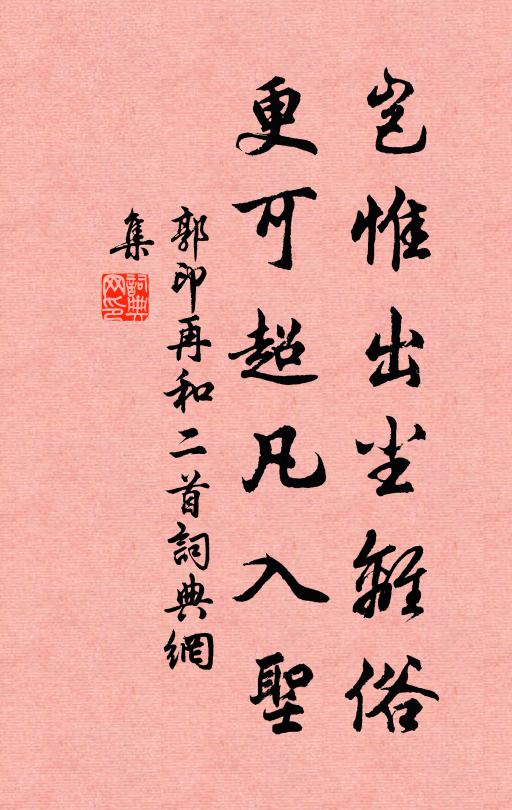 岂惟出尘離俗
更可超凡入聖
郭印再和二首詞典網
集
詞典網印